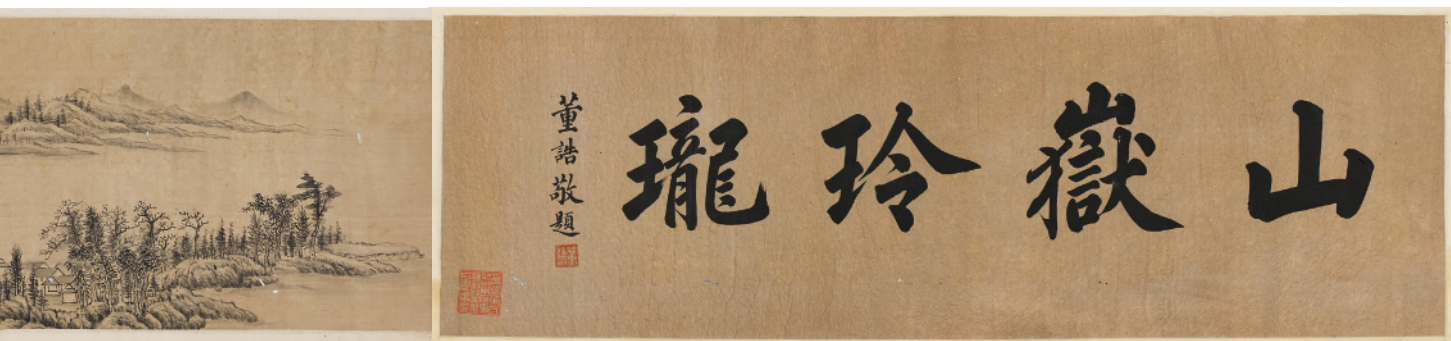 山嶽玲瓏
董誥敬題